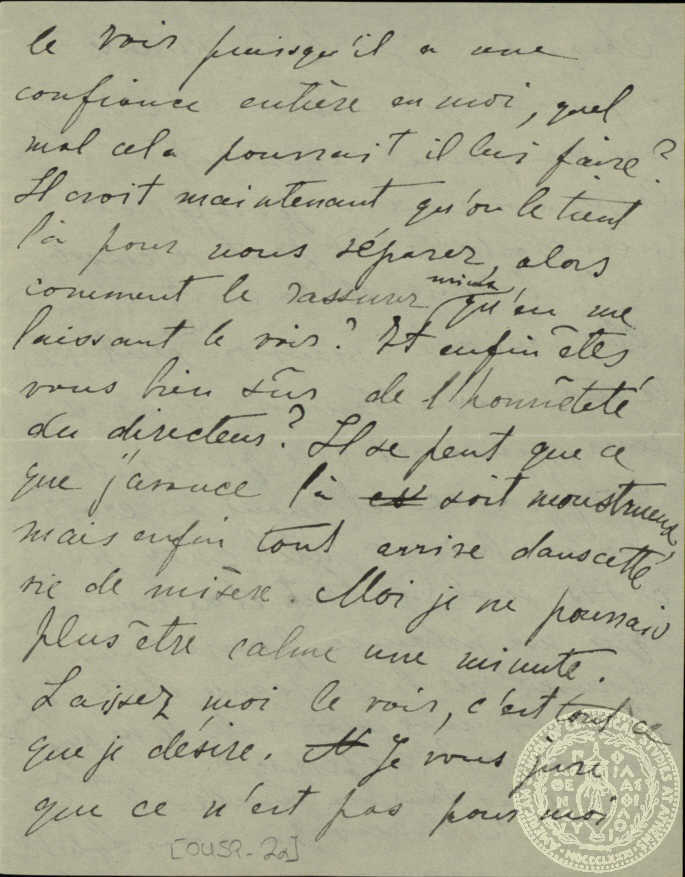 le voir puisqu'il a une
confiance entière en moi, quel
mal cela pourrait il lui faire?
Il croit maintenant qu'on le tient
là pour nous séparer, alors
comment le rassurer mieux qu'en me
laissant le voir? Et enfin êtes
vous bien sûr de l'honnêteté
du directeur? Il se peut que ce
que j'avance là est soit monstrueux
mais enfin tout arrive dans cette
vie de misère. Moi je ne pourrais
plus être calme une minute.
Laissez moi le voir, c'est tout ce
que je désire. N Je vous jure
que ce n'est pas pour moi
[OUSP-22]
MDCCCLXXXI